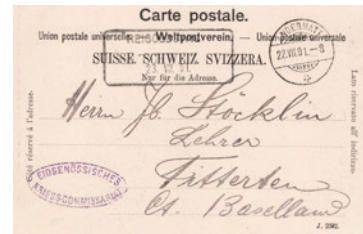 Carte postale.
Union postale universelle. — Weltpostverein. — Union postale universale
SUISSE. SCHWEIZ. SVIZZERA.
Nur für die Adresse.
22.VII.91.-8
23.VII.91.
Côté réservé à l'adresse.
Lato riservato all' indirizzo.
Herrn Jb. Stöcklin
Lehrer
Titterten
Ct. Baselland
EIDGENÖSSISCHES
KRIEGSCOMMISSARIAT